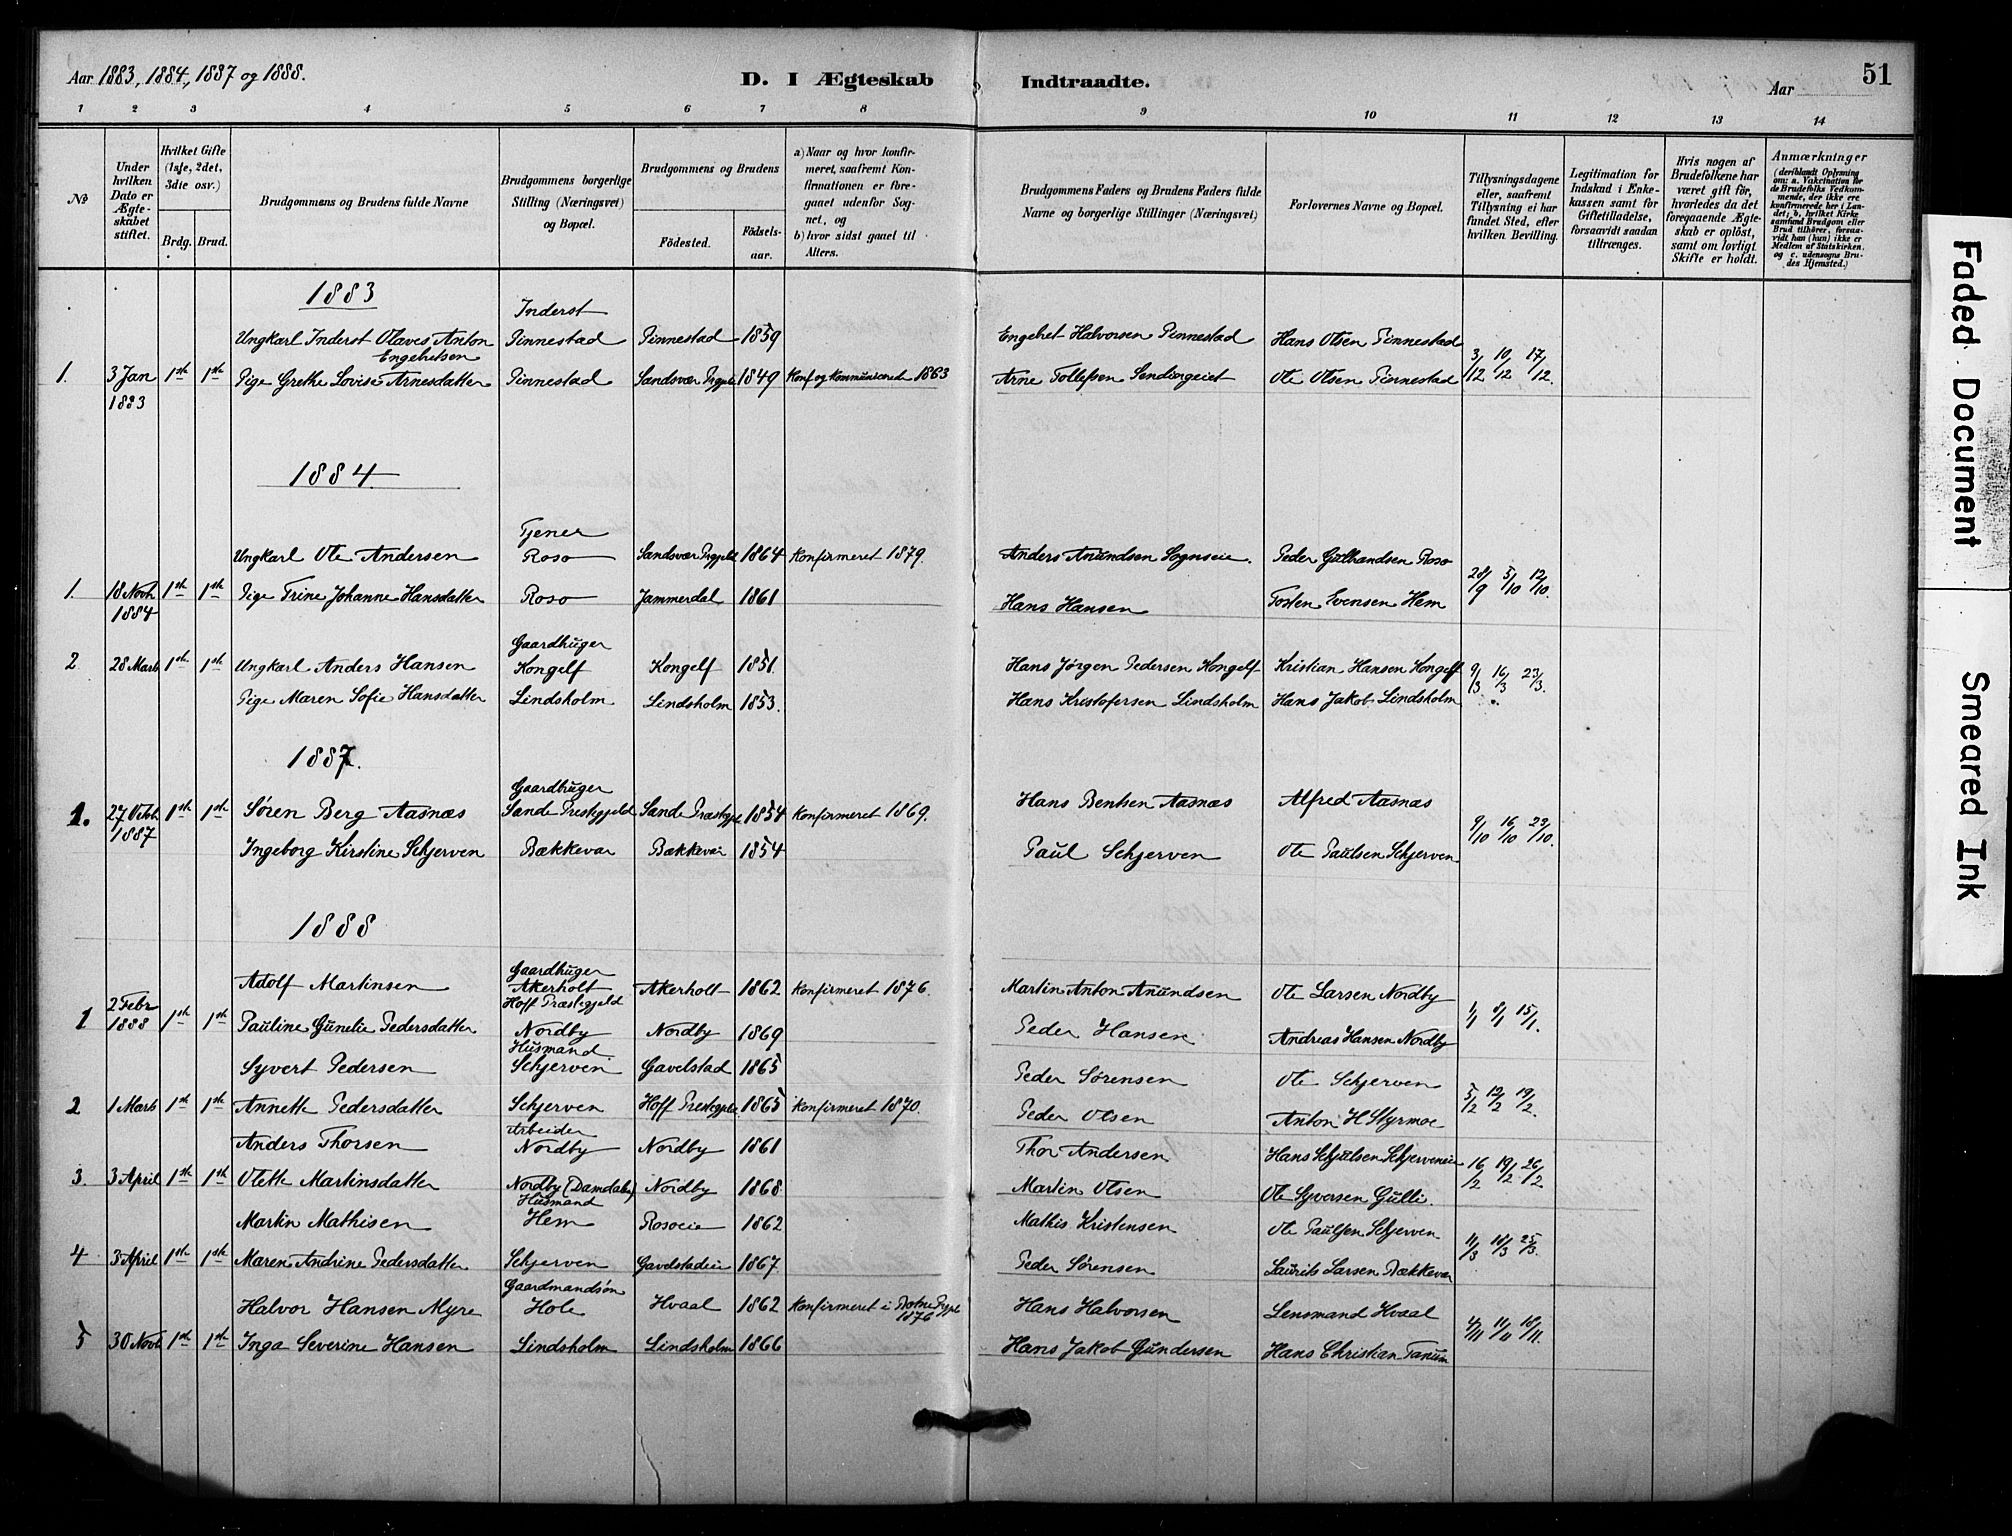 Aar 1883, 1884, 1887 og 1888.
D. I Ægteskab Indtraadte.
51
Aar
1 2 3 4 5 6 7 8 9 10 11 12 13 14
No
Under hvilken Dato er Ægteskabet stiftet.
Hvilket Gifte (1ste, 2det, 3die osv.)
Brdg. Brud.
Brudgommens og Brudens fulde Navne
Brudgommens borgerlige Stilling (Næringsvei) og Bopæl.
Brudgommens og Brudens
Fødested.
Fødselsaar.
a) Naar og hvor konfirmeret, saafremt Konfirmationen er foregaaet udenfor Sognet, og
b) hvor sidst gaaet til Alters.
Brudgommens Faders og Brudens Faders fulde Navne og borgerlige Stillinger (Næringsvei)
Forlovernes Navne og Bopæl.
Tillysningsdagene eller, saafremt Tillysning ei har fundet Sted, efter hvilken Bevilling.
Legitimation for Indskud i Enkekassen samt for Giftetilladelse, forsaavidt saadan tiltrænges.
Hvis nogen af Brudefolkene har været gift før, hvorledes da det foregaaende Ægteskab er opløst, samt om lovligt Skifte er holdt.
Anmærkninger (deriblandt Oplysning om: a. Vakcination for de Brudefolks Vedkommende, der ikke ere konfirmerede her i Landet; b. hvilket Kirkesamfund Brudgom eller Brud tilhører, forsaavidt han (hun) ikke er Medlem af Statskirken, og c. udensogns Brudes Hjemsted.)
1883
Inderst
Ungkarl Inderst Olaves Anton Engebretsen Pinnestad Pinnestad 1859 Engebret Halvorsen Pinnestad Hans Olsen Pinnestad
1. 3 Jan 1883 1ste 1ste Pige Grethe Lovise Arnesdatter Pinnestad Sandsvær Prgjeld 1849 Konf og Kommuniceret 1863 Arne Tollefsen Ole Olsen Pinnestad 3/12 10/12 17/12.
1884
Tjener
Ungkarl Ole Andersen Roso Sandsvær Prgjeld 1864 Konfirmeret 1879. Anders Anundsen Sognseie Peder Gulbrandsen Roso
1. 18 Novb 1884 1ste 1ste Pige Trine Johanne Hansdatter Roso Jammerdal 1861 Hans Hansen Tosten Evensen Hem 28/9 5/10 12/10.
Gaardbruger
2 28 Marts 1ste 1ste Ungkarl Anders Hansen Kongelf Kongelf 1851. Hans Jørgen Pedersen Kongelf Kristian Hansen Kongelf 9/3 16/3 23/3.
Pige Maren Sofie Hansdatter Lindsholm Lindsholm 1853. Hans Kristofersen Lindsholm Hans Jakob Lindsholm
1887.
Gaardbruger
1. 27 Octob 1887 1ste 1ste Søren Berg Aasnæs Sande Prestegjeld Sande Præstegjeld 1854 Konfirmeret 1869. Hans Bentsen Aasnæs Alfred Aasnæs 9/10 16/10 23/10.
Ingeborg Kirstine Schjerven Bækkevar Bækkevar 1854 Paul Schjerven Ole Paulsen Schjerven
1888
Gaardbruger
Adolf Martinsen Akerholt Hoff Præstegjeld Akerholt 1862 Konfirmeret 1876. Martin Anton Anundsen Ole Larsen Nordby
1 2 Febr 1888 1ste 1ste Pauline Gunelie Pedersdatter Nordby Nordby 1869 Peder Hansen Andreas Hansen Nordby 1/1 8/1 15/1.
Husmand
Syvert Pedersen Schjerven Gavelstad 1865 Peder Sørensen Ole Schjerven
2 1 Marts 1ste 1ste Annette Pedersdatter Schjerven Hoff Prestegjeld 1865 Konfirmeret 1870. Peder Olsen Anton H Styrmoe 5/2 12/2 19/2.
Arbeider
Anders Thorsen Nordby Nordby 1861 Thor Andersen Hans Schjulsen Schjerveneie
3. 3 April 1ste 1ste Olette Martinsdatter Nordby (Damdalen) Nordby 1868 Martin Olsen Ole Syversen Gulli. 16/2 19/2 26/2
Husmand
Martin Mathisen Hem Rosoeie 1862 Mathis Kristensen Ole Paulsen Schjerven
4 3 April 1ste 1ste Maren Andrine Pedersdatter Schjerven Gavelstadeie 1867. Peder Sørensen Laurits Larsen Bækkevar 11/3 18/3 25/3.
Gaardmandsøn
Halvor Hansen Myre Hole Hvaal 1862 Konfirmeret i Botne Prgjld 1876 Hans Halvorsen Lensmand Hvaal
5 30 Novb 1ste 1ste Inga Severine Hansen Lindsholm Lindsholm 1866 Hans Jakob Gundersen Hans Christian Tanum 4/11 11/11 18/11.
Faded Document
Smeared Ink